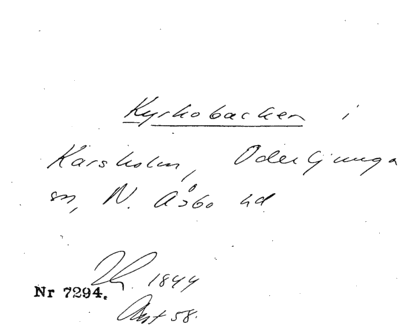 Kyrkobacken i
Karsholm, Oderljunga
sn, N. Åsbo hd.
1844
Nr 7294.
58.